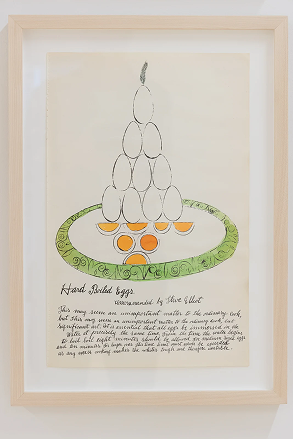 Hard Boiled Eggs
Recommended by Steve Elliot
This may seem an unimportant matter to the ordinary cook,
but This may seem an unimportant matter to the ordinary cook, but
significant art. It is essential that all eggs be immersed in the
water at precisely the same time. From the time the water begins
to boil eight minutes should be allowed for medium sized eggs
and ten minutes for large ones. This time limit must be
as any more cooking makes the whites tough and